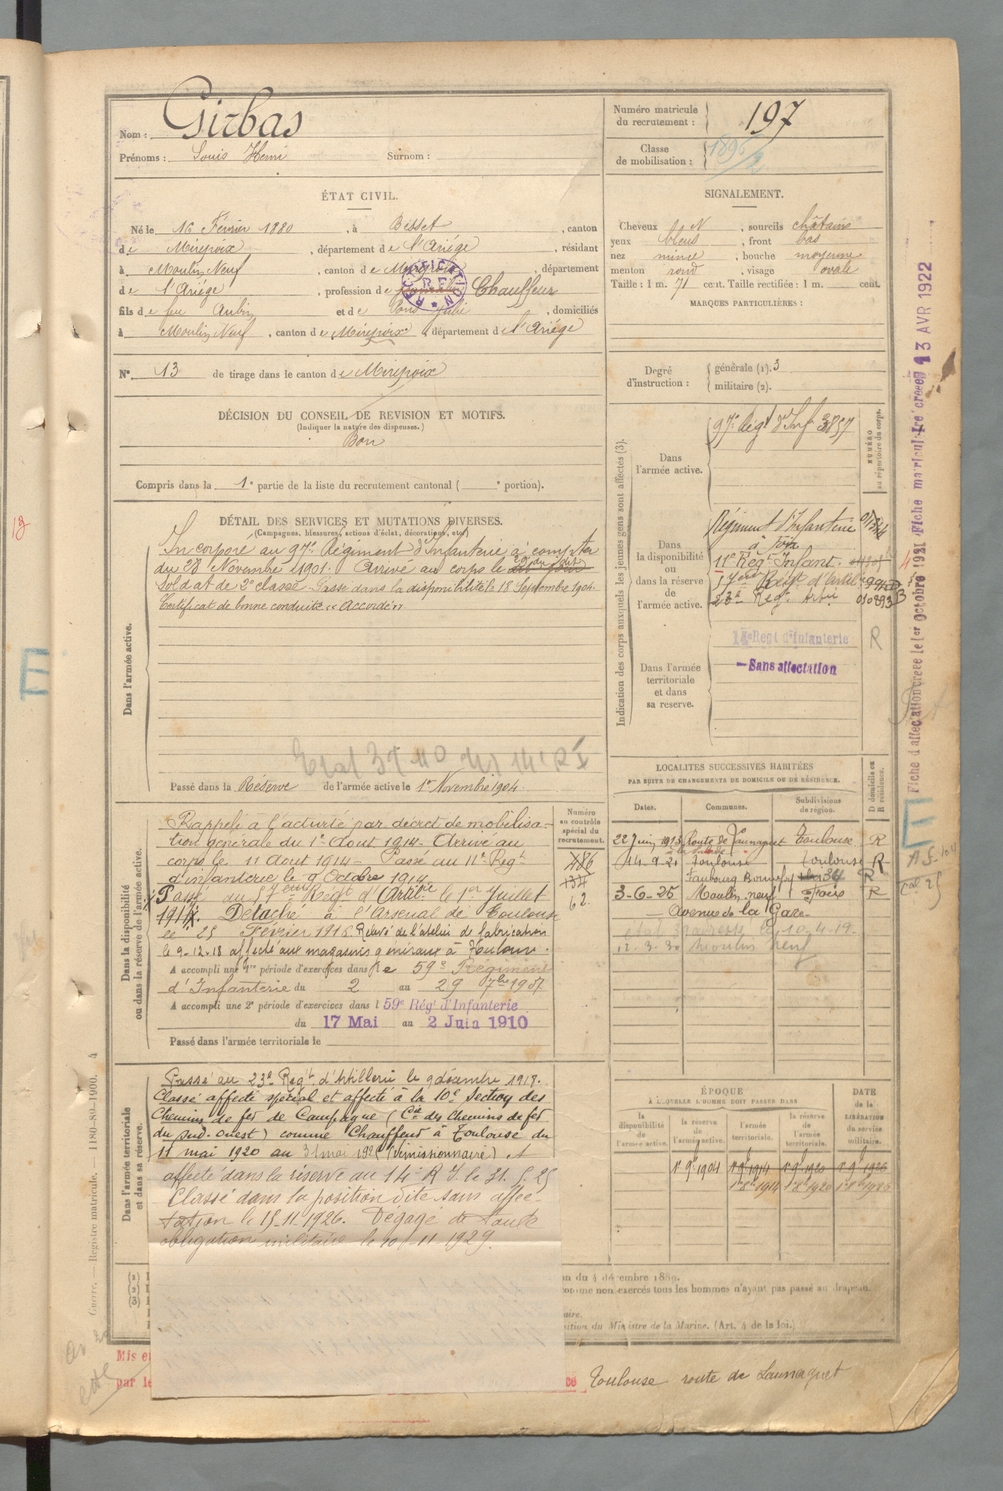 Nom : Girbas
Prénoms : Louis Henri Surnom :
Numéro matricule du recrutement : 197
Classe de mobilisation : 1896/2
ÉTAT CIVIL.
Né le 16 Février 1880, à Besset, canton
de Mirepoix, département de l'Ariége, résidant
à Moulin Neuf, canton de Mirepoix, département
de l'Ariége, profession de Chauffeur
RECTIFICATION
fils de feu Aubin et de Pons Julie, domiciliés
à Moulin Neuf, canton de Mirepoix, département de l'Ariége
N° 13 de tirage dans le canton de Mirepoix
SIGNALEMENT.
Cheveux ch N, sourcils châtains
yeux bleus, front bas
nez mince, bouche moyenne
menton rond, visage ovale
Taille : 1 m. 71 cent. Taille rectifiée : 1 m. cent.
MARQUES PARTICULIÈRES :
Degré d'instruction : générale (1). 3
militaire (2).
DÉCISION DU CONSEIL DE REVISION ET MOTIFS.
(Indiquer la nature des dispenses.)
Bon
Compris dans la 1e partie de la liste du recrutement cantonal ( e portion).
DÉTAIL DES SERVICES ET MUTATIONS DIVERSES.
(Campagnes, blessures, actions d'éclat, décorations, etc.)
Dans l'armée active.
Incorporé au 97e Régiment d'Infanterie à compter
du 28 Novembre 1901. Arrivé au corps le dit jour
Soldat de 2e classe. Passé dans la disponibilité le 18 Septembre 1904.
Certificat de bonne conduite "Accordé"
Passé dans la Réserve de l'armée active le 1er Novembre 1904
Indication des corps auxquels les jeunes gens sont affectés (3).
NUMÉRO au répertoire du corps.
Dans l'armée active.
97e Régt d'Inf 3857
Dans la disponibilité ou dans la réserve de l'armée active.
Régiment d'Infanterie
à Foix
11e Régt Infant.
23e Régt Artie
Dans l'armée territoriale et dans sa réserve.
14e Regt d'Infanterie R
Sans affectation
Fiche d'affectation créée le 1er octobre 1921 Fiche matricul-tre créée 13 AVR 1922
Dans la disponibilité ou dans la réserve de l'armée active.
Numéro au contrôle spécial du recrutement.
Rappelé à l'activité par décret de mobilisa-
tion générale du 1er Août 1914. Arrivé au
corps le 11 Août 1914 - Passé au 11e Régt
d'infanterie le 9 Octobre 1914
Passé du 57eme Regt d'Artilrie le 1er Juillet
191. Détaché à l'Arsenal de Toulouse
le 25 Février 1916. Relevé de l'atelier de fabrication
le 9-12-18 affecté aux magasins généraux à Toulouse.
A accompli une 1re période d'exercices dans le 59e Régiment
d'Infanterie du 2 au 29 7bre 1907
A accompli une 2e période d'exercices dans l 59e Régt d'Infanterie
du 17 Mai au 2 Juin 1910
Passé dans l'armée territoriale le
LOCALITÉS SUCCESSIVES HABITÉES
PAR SUITE DE CHANGEMENTS DE DOMICILE OU DE RÉSIDENCE.
D domicile ou R résidence.
Dates. Communes. Subdivisions de région.
22 Juin 1913 Route de Launaguet Toulouse R
14-9-20 Toulouse Toulouse R
Faubourg Bonnefoy
3-6-25 Moulin neuf Foix R
Avenue de la Gare
12-3-30 Moulin neuf
Dans l'armée territoriale et dans sa réserve.
Passé au 23e Regt d'Artillerie le 9 décembre 1917.
Classé affecté spécial et affecté à la 10e Section des
Chemins de fer de Campagne (Cie des Chemins de fer
du Sud-Ouest) comme Chauffeur à Toulouse du
11 mai 1920 au 31 mai 192 (Démissionnaire)
affecté dans la réserve au 14e R I. le 31.5.25
Classé dans la position dite sans affec-
tation le 15-11-1926. Dégagé de toute
obligation militaire le 10-11-1929.
ÉPOQUE
À LAQUELLE L'HOMME DOIT PASSER DANS
DATE de la LIBÉRATION du service militaire.
la disponibilité de l'armée active. la réserve de l'armée active. l'armée territoriale. la réserve de l'armée territoriale.
1r 9e 1904 1r 9e 1914 1r 9e 1920 1r 9e 1926
on du 4 décembre 1889.
comme non exercés tous les hommes n'ayant pas passé au drapeau.
ition du Ministre de la Marine. (Art. 4 de la loi.)
Guerre. — Registre matricule. — 1180-89-1900. 4
Mis e
par le
Toulouse route de Launaguet